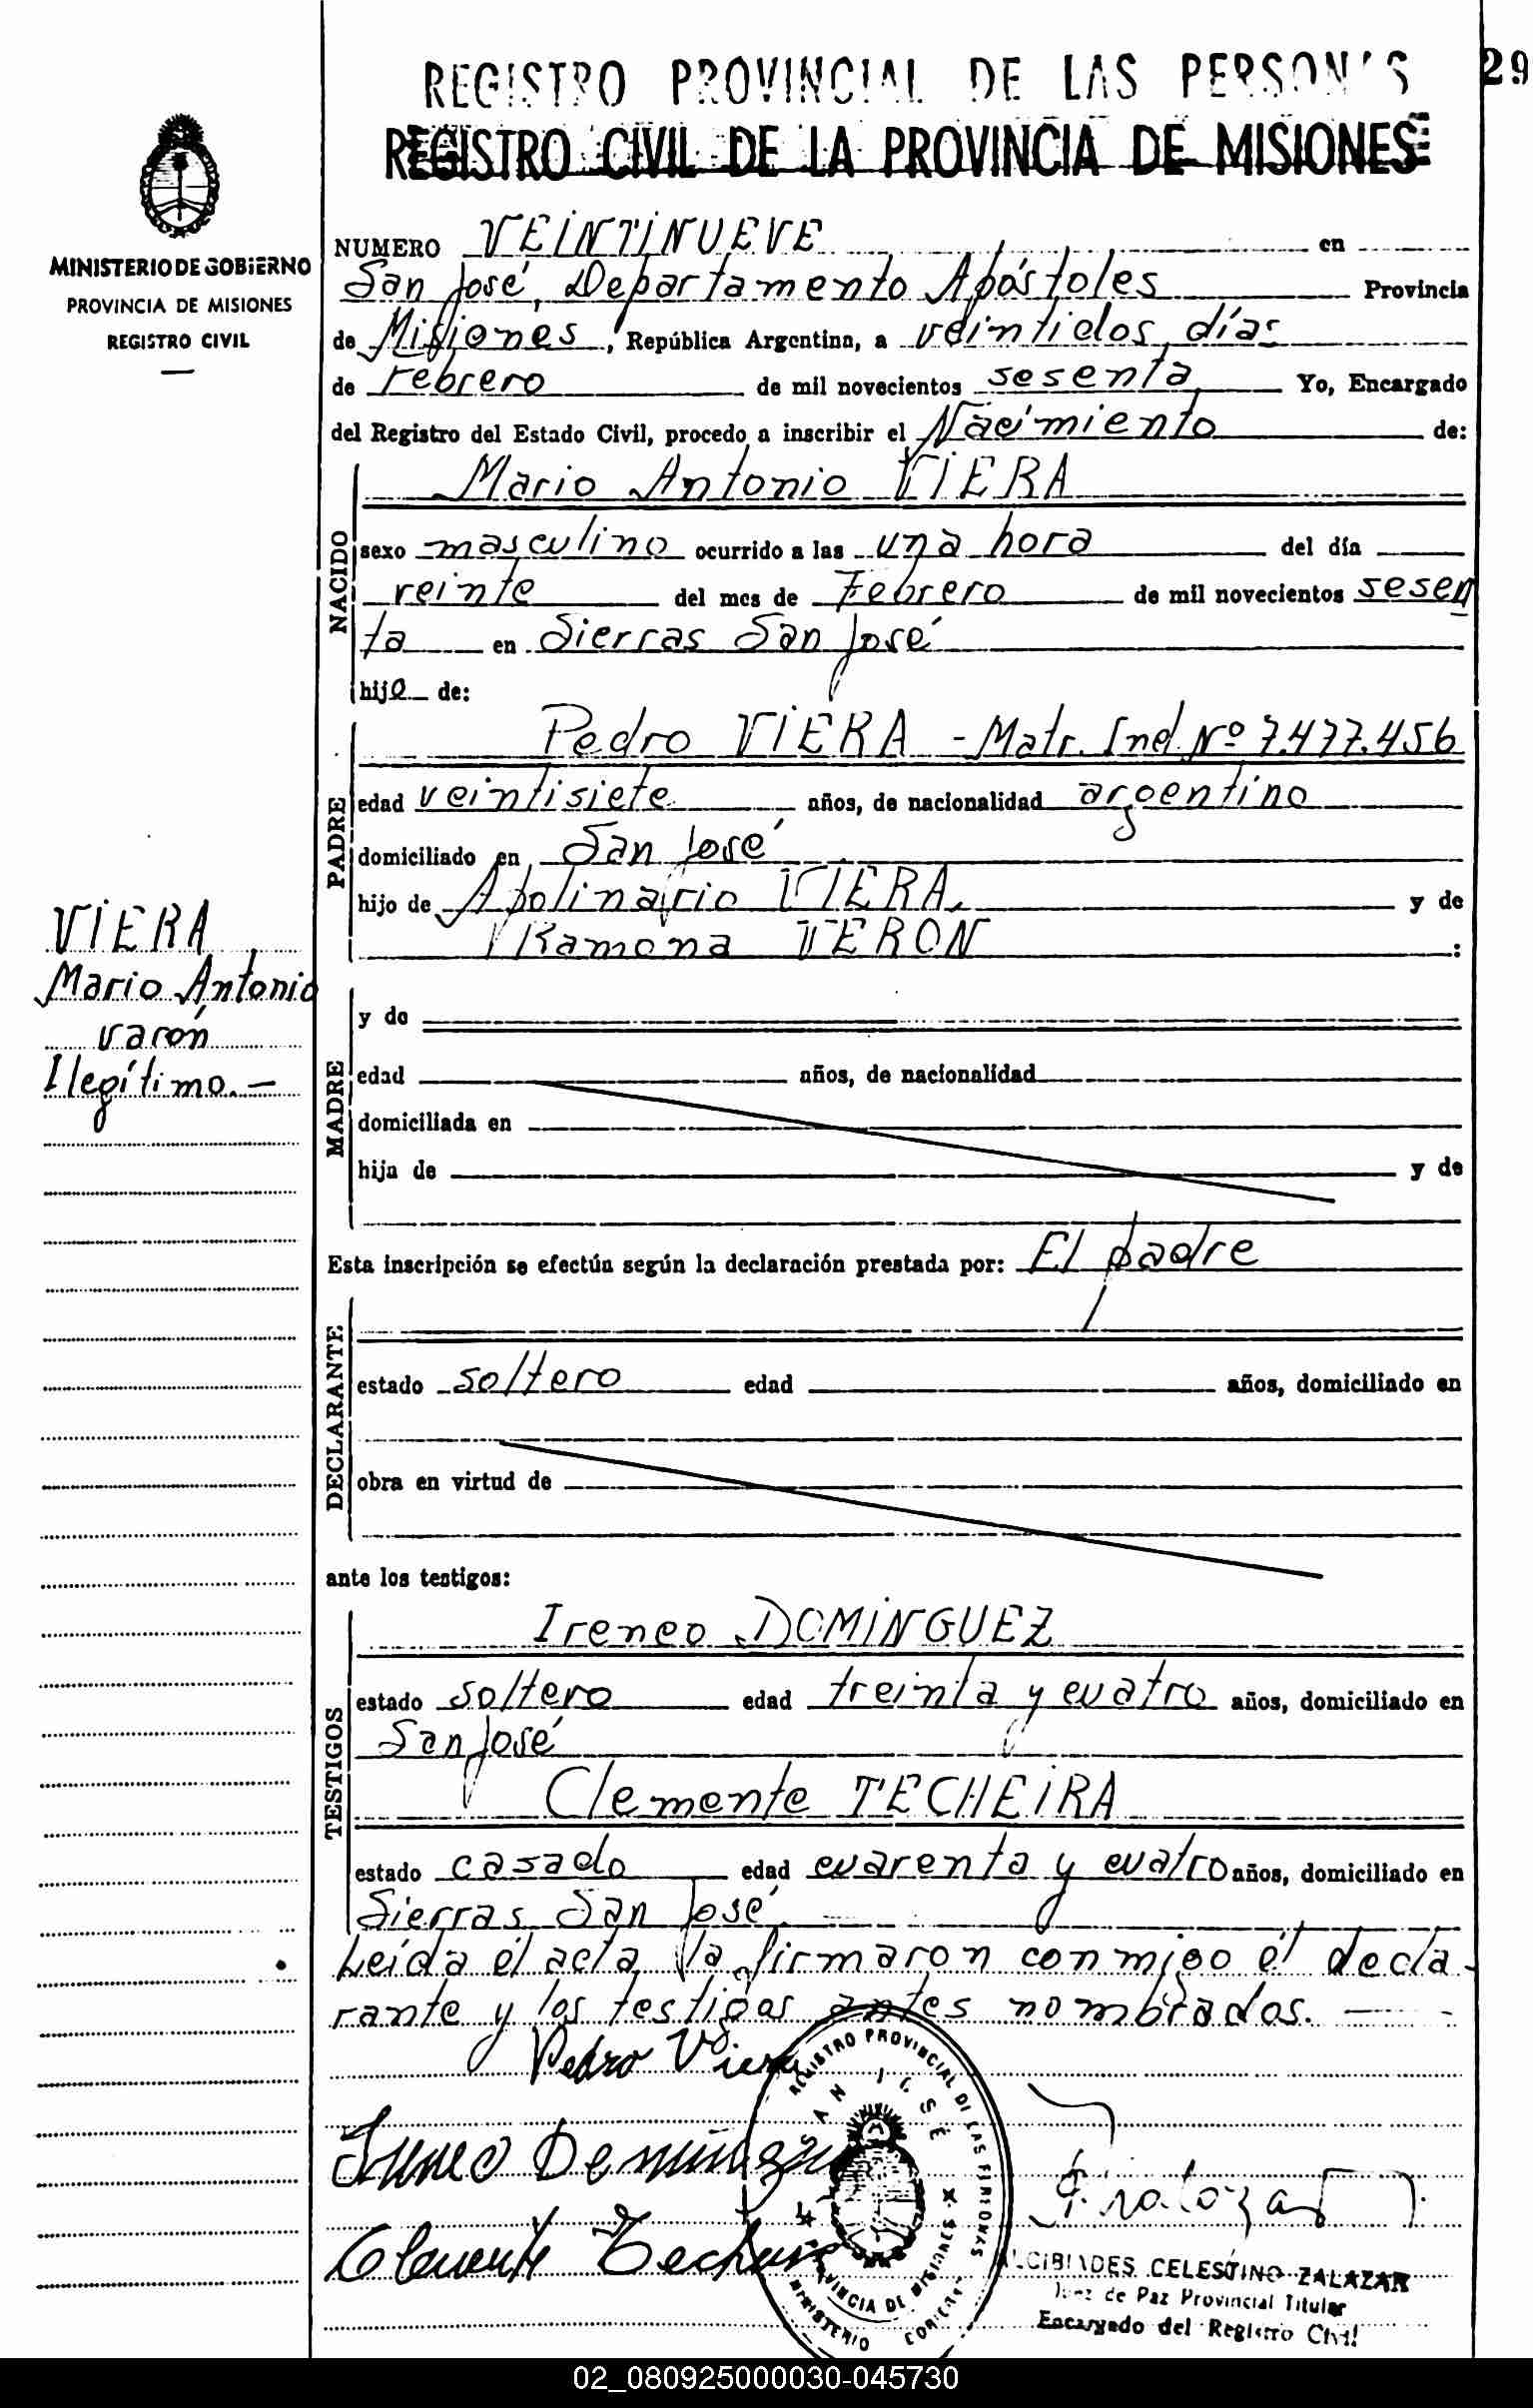 REGISTRO PROVINCIAL DE LAS PERSONAS
29
REGISTRO CIVIL DE LA PROVINCIA DE MISIONES
MINISTERIO DE GOBIERNO
PROVINCIA DE MISIONES
REGISTRO CIVIL
NUMERO VEINTINUEVE en
San José, Departamento Apóstoles Provincia
de Misiones, República Argentina, a veintidos días
de Febrero de mil novecientos sesenta Yo, Encargado
del Registro del Estado Civil, procedo a inscribir el Nacimiento de:
NACIDO
Mario Antonio VIERA
sexo masculino ocurrido a las una hora del día
veinte del mes de Febrero de mil novecientos sesen
ta en Sierras San José
hijo de:
PADRE
Pedro VIERA - Matr. Ind. Nº 7.477.456
edad veintisiete años, de nacionalidad argentino
domiciliado en San José
hijo de Apolinario VIERA, y de
Ramona VERON :
VIERA
Mario Antonio
varón
Ilegítimo.-
MADRE
y de
edad años, de nacionalidad
domiciliada en
hija de y de
Esta inscripción se efectúa según la declaración prestada por: El padre
DECLARANTE
estado soltero edad años, domiciliado en
obra en virtud de
ante los testigos:
TESTIGOS
Ireneo DOMINGUEZ
estado soltero edad treinta y cuatro años, domiciliado en
San José
Clemente TECHEIRA
estado casado edad cuarenta y cuatro años, domiciliado en
Sierras San José.
Leída el acta, la firmaron conmigo el decla-
rante y los testigos antes nombrados.
Pedro Viera
REGISTRO PROVINCIAL DE LAS PERSONAS
SAN JOSÉ
PROVINCIA DE MISIONES
MINISTERIO GOBIERNO
Clemente
ALCIBIADES CELESTINO ZALAZAR
Juez de Paz Provincial Titular
Encargado del Registro Civil
02_080925000030-045730